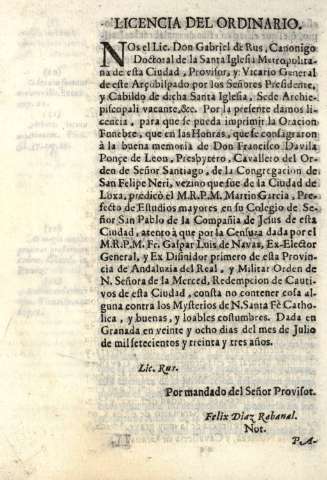 LICENCIA DEL ORDINARIO.
NOs el Lic. Don Gabriel de Rus, Canonigo
Doctoral de la Santa Iglesia Metropolita-
na de esta Ciudad, Provisor, y Vicario General
de este Arçobispado por los Señores Presidente,
y Cabildo de dicha Santa Iglesia, Sede Archie-
piscopali vacante, &c. Por la presente damos li-
cencia, para que se pueda imprimir la Oracion
Funebre, que en las Honras, que se consagraron
à la buena memoria de Don Francisco Davila
Ponçe de Leon, Presbytero, Cavallero del Or-
den de Señor Santiago, de la Congregacion de
San Felipe Neri, vezino que fue de la Ciudad de
Loxa, predicò el M.R.P.M. Martin Garcia, Pre-
fecto de Estudios mayores en su Colegio de Se-
ñor San Pablo de la Compañia de Jesus de esta
Ciudad, atento à que por la Censura dada por el
M.R.P.M. Fr. Gaspar Luis de Navas, Ex-Elector
General, y Ex Difinidor primero de esta Provin-
cia de Andaluzia del Real, y Militar Orden de
N. Señora de la Merced, Redempcion de Cauti-
vos de esta Ciudad, consta no contener cosa al-
guna contra los Mysterios de N. Santa Fè Catho-
lica, y buenas, y loables costumbres. Dada en
Granada en veinte y ocho dias del mes de Julio
de mil setecientos y treinta y tres años.
Lic. Rus.
Por mandado del Señor Provisor.
Felix Diaz Rabanal.
Not.
PA-